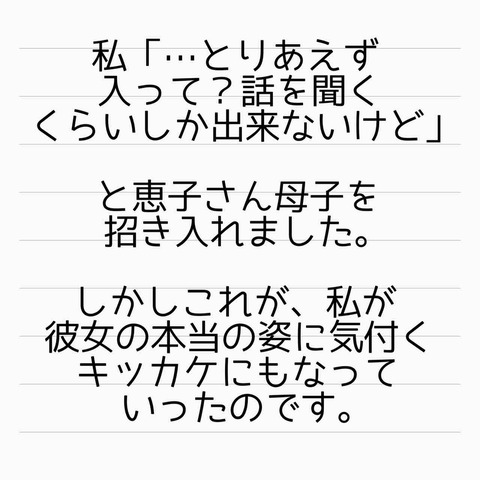 私「…とりあえず
入って？話を聞く
くらいしか出来ないけど」
と恵子さん母子を
招き入れました。
しかしこれが、私が
彼女の本当の姿に気付く
キッカケにもなって
いったのです。